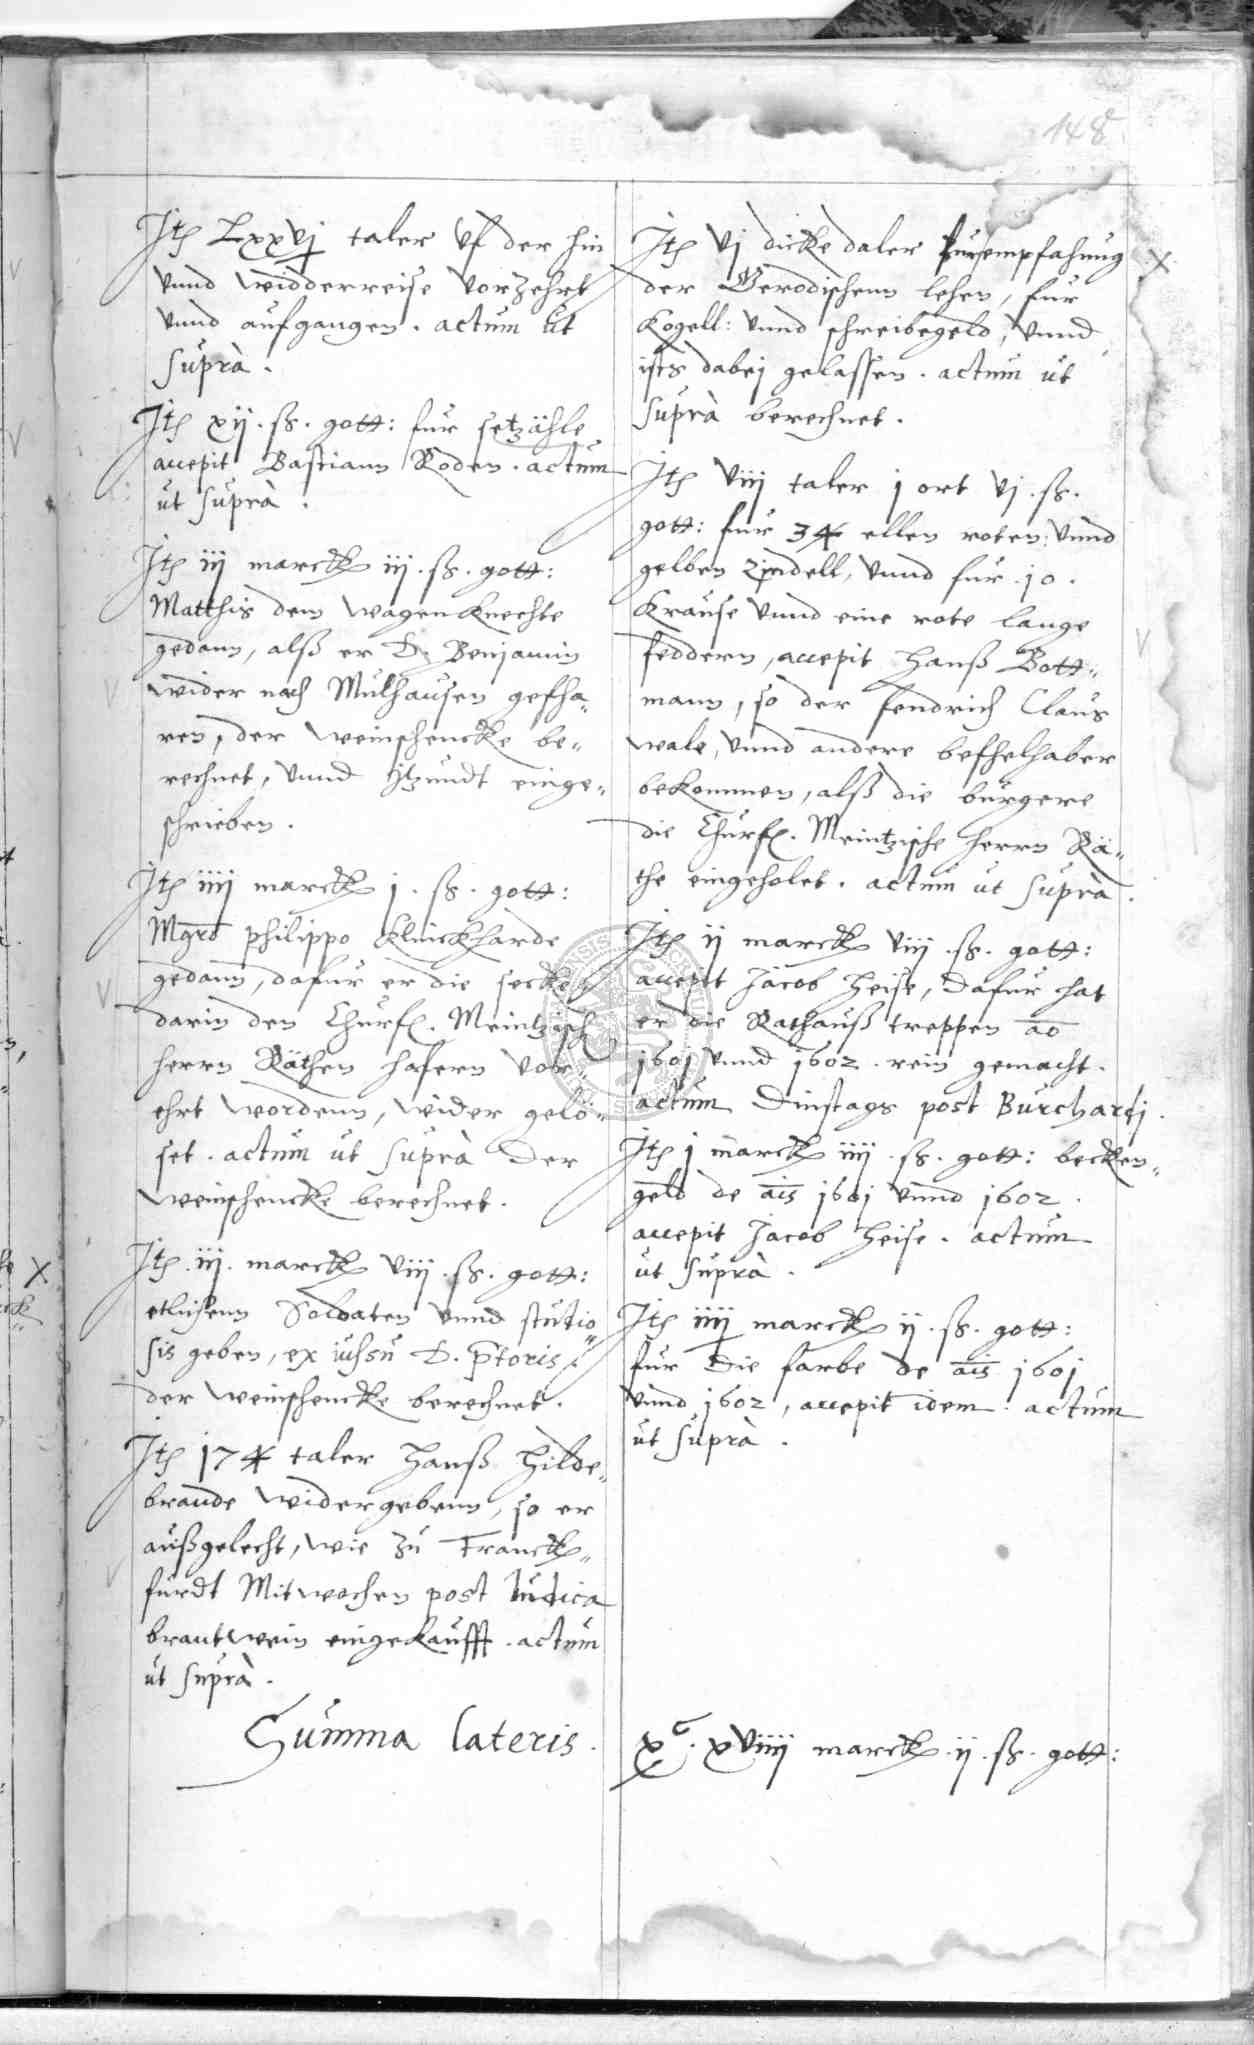 148
Itē Lxxvj taler uf der hin
vnnd widderreise vorzehrt
vnnd aufgangen. actum ut
suprà.
Itē xij. ß. gott: fur setzähle
accepit Bastiann Roden. actum
ut suprà.
Itē iij marck iij. ß. gott:
Matthis dem wagenknechte
gedann, alß er D. Benjamin
wider nach Mülhausen gefha„
ren, der weinschencke be„
rechnet, vnnd itzundt einge„
schrieben.
Itē iiij marck j. ß. gott:
Mgro philippo Klinckharde
gedann, dafur er die secke
darin den Churf. Meintzisch
herrn Räthen hafern vor„
ehrt wordenn, wider gelö„
set. actum ut suprà der
weinschencke berechnet.
Itē. iij. marck viij. ß. gott:
etlichenn Soldaten vnnd studio„
sis geben, ex iussu D. ptoris
der weinschencke berechnet.
Itē 174 taler Hanß Hilde„
brande widergebenn, so er
außgelecht, wie zu Franck„
furdt Mitwochen post Iudica
brantwein eingekaufft. actum
ut suprà.
Summa lateris.
Itē vj dicke daler fur empfahung
der Gerodischenn lehen, fur
Kogell: vnnd schreibegeld, vnnd
ists dabej gelassen. actum ut
suprà berechnet.
Itē viij taler j ort vj. ß.
gott: fur 34 ellen roten: vnnd
gelben zindell, vnnd fur .10.
Krause vnnd eine rote lange
feddern, accepit Hanß Bott„
mann, so der fendrich Claus
wale, vnnd andere befhelhaber
bekommen, alß die bürgere
die Churf. Meintzische herrn Rä„
the eingeholet. actum ut suprà.
Itē ij marck viij. ß. gott:
accepit Jacob Heise, dafur hat
er die Rathauß treppen ao
1601 vnnd 1602. rein gemacht.
actum Dinstags post Burchardj.
Itē j marck iiij. ß. gott: becken„
geld de ais 1601 vnnd 1602.
accepit Jacob Heise. actum
ut suprà.
Itē iiij marck ij. ß. gott:
fur die farbe de ais 1601
vnnd 1602, accepit idem. actum
ut suprà.
xc. xviiij marck .ij. ß. gott: